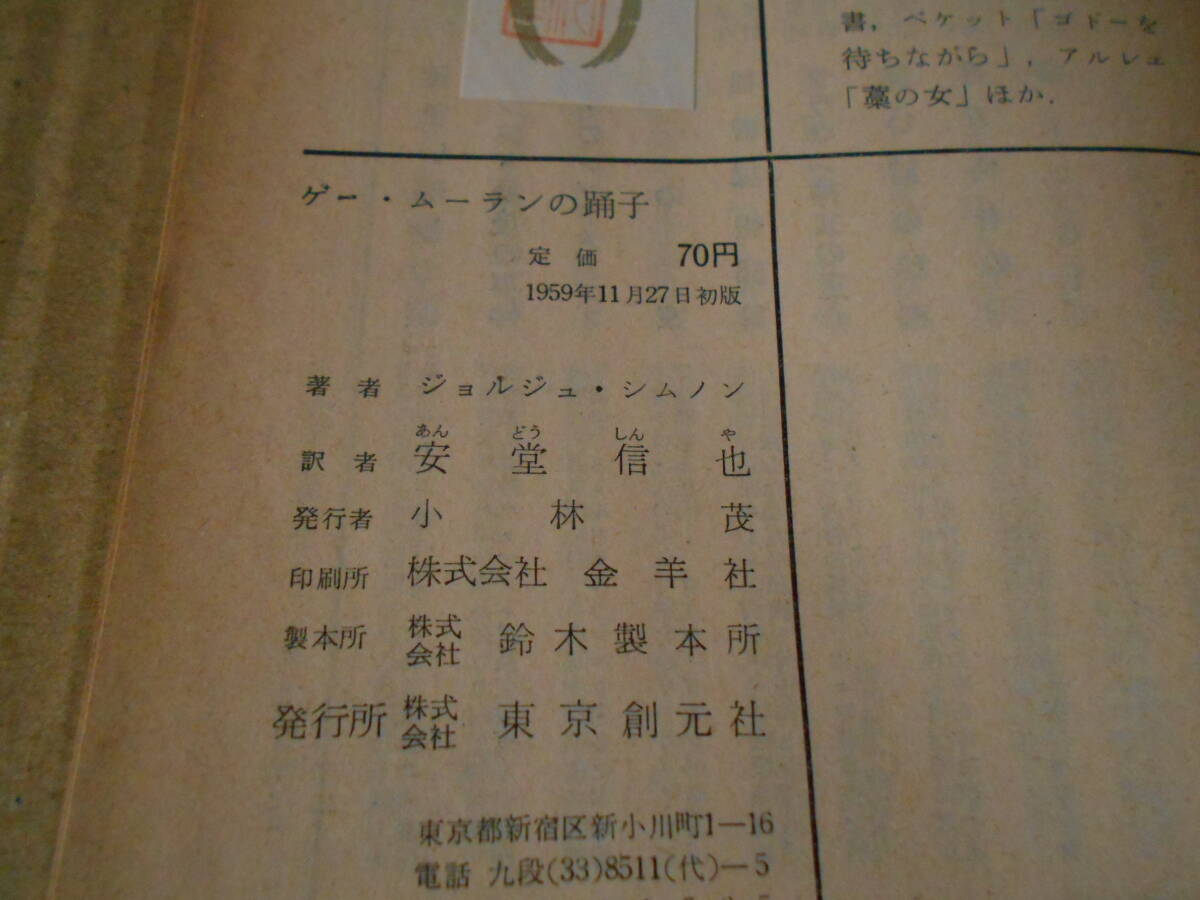 書，ベケット「ゴドーを
待ちながら」，アルレェ
「藁の女」ほか．
ゲー・ムーランの踊子
定価 70円
1959年11月27日初版
著者 ジョルジュ・シムノン
あん どう しん や
訳者 安堂信也
発行者 小林茂
印刷所 株式会社 金羊社
製本所 株式会社 鈴木製本所
発行所 株式会社 東京創元社
東京都新宿区新小川町1―16
電話 九段(33)8511(代)―5